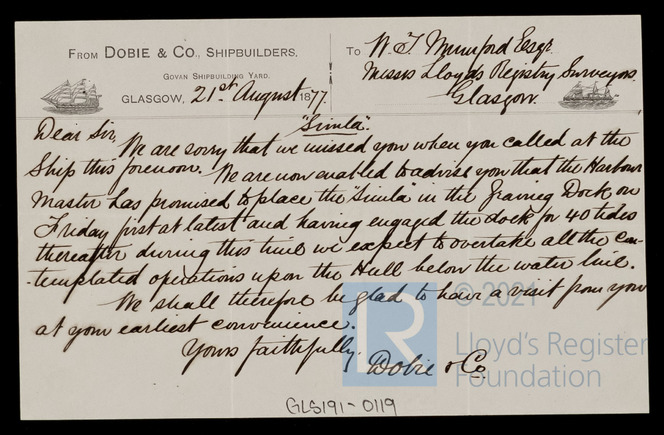 FROM DOBIE & CO., SHIPBUILDERS,
GOVAN SHIPBUILDING YARD.
GLASGOW, 21st August 1877.
To W. T. Mumford Esqr.
Messrs Lloyds Registry Surveyors,
Glasgow.
"Simla".
Dear Sir,
We are sorry that we missed you when you called at the
Ship this forenoon. We are now enabled to advise you that the Harbour
Master has promised to place the "Simla" in the Graving Dock on
Friday first at latest and having engaged the dock for 40 tides
thereafter during this time we expect to overtake all the con-
-templated operations upon the Hull below the water line.
We shall therefore be glad to have a visit from you
at your earliest convenience.
Yours faithfully
Dobie & Co.
© 2021
Lloyd's Register
Foundation
LR
GLS191-0119